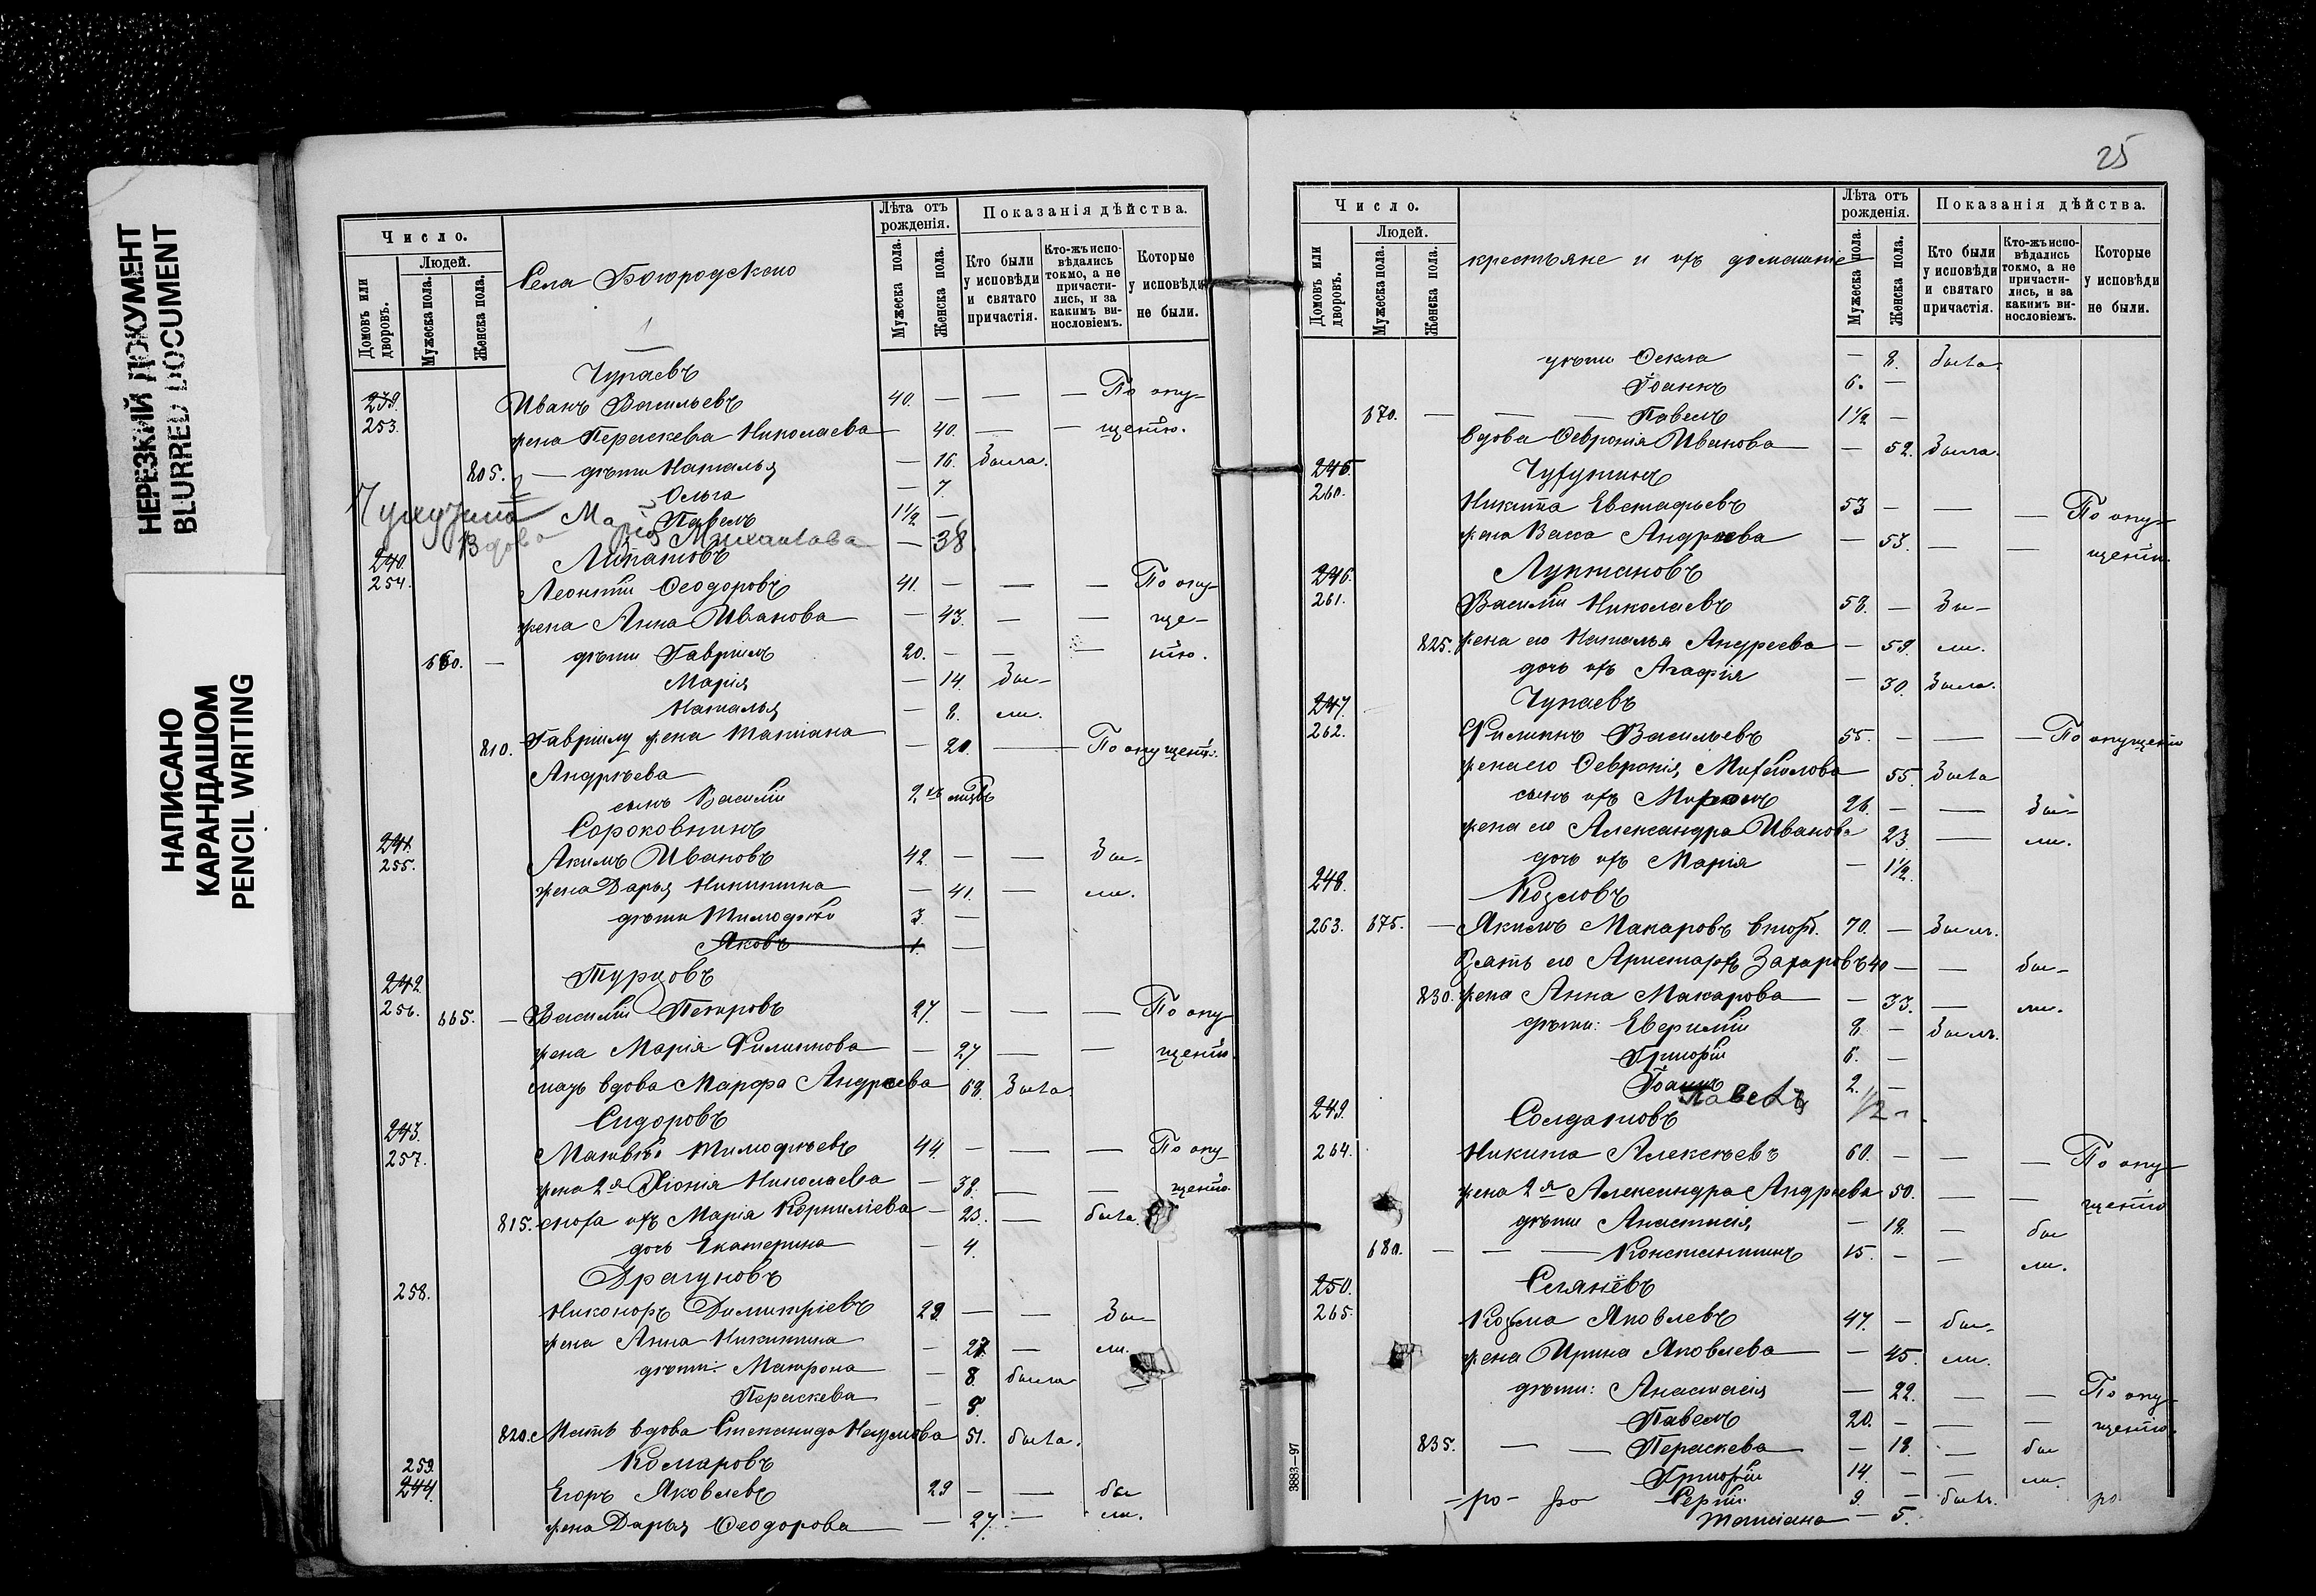 НЕРЕЗКИЙ ДОКУМЕНТ
BLURRED DOCUMENT
НАПИСАНО
КАРАНДАШОМ
PENCIL WRITING
Число.
Людей.
Домовъ или дворовъ.
Мужеска пола.
Женска пола.
Села Богородскаго
Лѣта отъ рожденія.
Мужеска пола.
Женска пола.
Показанія дѣйства.
Кто были у исповѣди и святаго причастія.
Кто-жъ исповѣдались токмо, а не причастились, и за какимъ винословіемъ.
Которые у исповѣди не были.
Чупаевъ
239. Иванъ Васильевъ 40. — — — По опу-
253. жена Параскева Николаева — 40. — — щенію.
805. — дѣти Наталья — 16. была.
Ольга — 7.
Павелъ 1½ —
Вдова Марія Михаилова — 38
240. Липатовъ
254. Леонтій Ѳеодоровъ 41. — — — По опу-
жена Анна Ивановa — 43. — — ще-
660. — дѣти Гавріилъ 20. — — — нію.
Марія — 14. бы-
Наталья — 8. ли.
810. Гавріилу жена Татіана — 20. — — По опущенію.
Андрѣева
сынъ Василій 2хъ мѣсяц
Сороковнинъ
241.
255. Акимъ Ивановъ 42. — — бы-
жена Дарья Никитина — 41. — ли.
дѣти Тимоѳей 3 —
Яковъ 1. —
242. Турцовъ
256. 665. — Василій Петровъ 27. — — — По опу-
жена Марія Филиппова — 27 — — щенію.
мать вдова Марѳа Андреева 68. была.
Сидоровъ
243.
257. Матвѣй Тимоѳеевъ 44. — — — По опу-
жена 2я Хіонія Николаева — 38. — — щенію.
815. сноха ихъ Марія Корниліева — 23. — была
дочь Екатерина — 4.
Драгуновъ
258.
Никоноръ Димитріевъ 29. — — бы-
жена Анна Никитина — 27. — ли.
дѣти: Матрона — 8. была —
Параскева —
820. Мать вдова Степанида Наумова 51. была.
259. Комаровъ
244. Егоръ Яковлевъ 29 — — бы
жена Дарья Ѳеодорова — 27. — ли.
25
Число.
Людей.
Домовъ или дворовъ.
Мужеска пола.
Женска пола.
крестьяне и ихъ домашніе
Лѣта отъ рожденія.
Мужеска пола.
Женска пола.
Показанія дѣйства.
Кто были у исповѣди и святаго причастія.
Кто-жъ исповѣдались токмо, а не причастились, и за какимъ винословіемъ.
Которые у исповѣди не были.
дѣти Ѳекла — 8. была.
Іоаннъ 6. —
670. — — — Павелъ 1½ —
вдова Ѳевронія Иванова — 52. была.
245.
260. Никита Евстафьевъ 53 — — — По опу-
жена Васса Андреева — 53. — — щенію.
246. Лукмановъ
261. Василій Николаевъ 58. — бы-
825. жена его Наталья Андреева — 59. ли.
дочь ихъ Агафія — 30. была.
247. Чупаевъ
262. Филиппъ Васильевъ 55. — — — По опущенію
жена его Ѳевронія Михайлова 55. была
сынъ ихъ 26. — — бы-
жена его Александра Иванова 23. — ли.
дочь ихъ Марія — 1½.
248. Козловъ
263. 675. — Акимъ Макаровъ вторб. 70. — былъ.
Зять его Аристархъ Захаровъ 40 — — бы-
830. жена Анна Макарова — 33. — ли.
дѣти: Евфимій 8. — былъ.
Григорій 6. —
Іоаннъ 2. —
Павелъ 1/2 —
249. Солдатовъ
264. Никита Алексѣевъ 60. — — — По опу-
жена 2я Александра Андреева 50. — — щенію
дѣти Анастасія — 18. — бы
680. — — — Константинъ 15. — — ли.
250.
265. Козьма Яковлевъ 47. — бы-
жена Ирина Яковлева — 45. ли.
дѣти: Анастасія — 22. — — По опу-
Павелъ 20. — — — щенію.
835. — — Параскева — 18. — бы
Григорій 14. — — ли.
Сергій 9. — былъ.
Татіана — 5.
3883—97